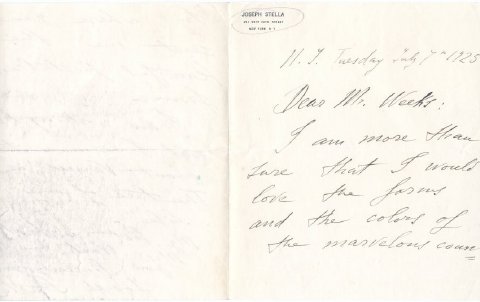 JOSEPH STELLA
NEW YORK, N.Y.
N. Y. Tuesday July 7th 1925
Dear Mr. Weeks:
I am more than
sure that I would
love the forms
and the colors of
the marvelous coun=